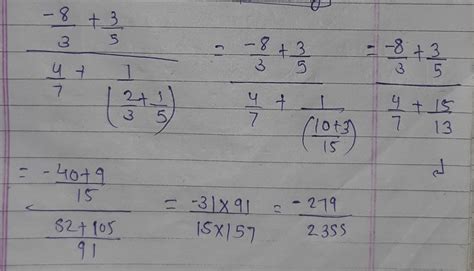 -8/3 + 3/5 / 4/7 + 1/(2/3 + 1/5) = -8/3 + 3/5 / 4/7 + 1/(10+3/15) = -8/3 + 3/5 / 4/7 + 15/13
= -40+9/15 / 52+105/91 = -31×91/15×157 = -279/2355